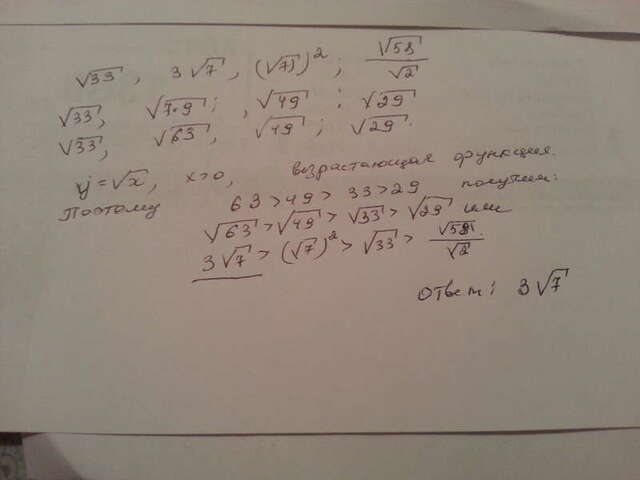 √33, 3√7, (√7)²; √58/√2
√33, √7·9; , √49; √29
√33, √63, √49; √29.
y=√x, x>0, возрастающая функция.
Поэтому 63>49>33>29 получим:
√63>√49>√33>√29 или
3√7>(√7)²>√33>√58/√2.
Ответ: 3√7